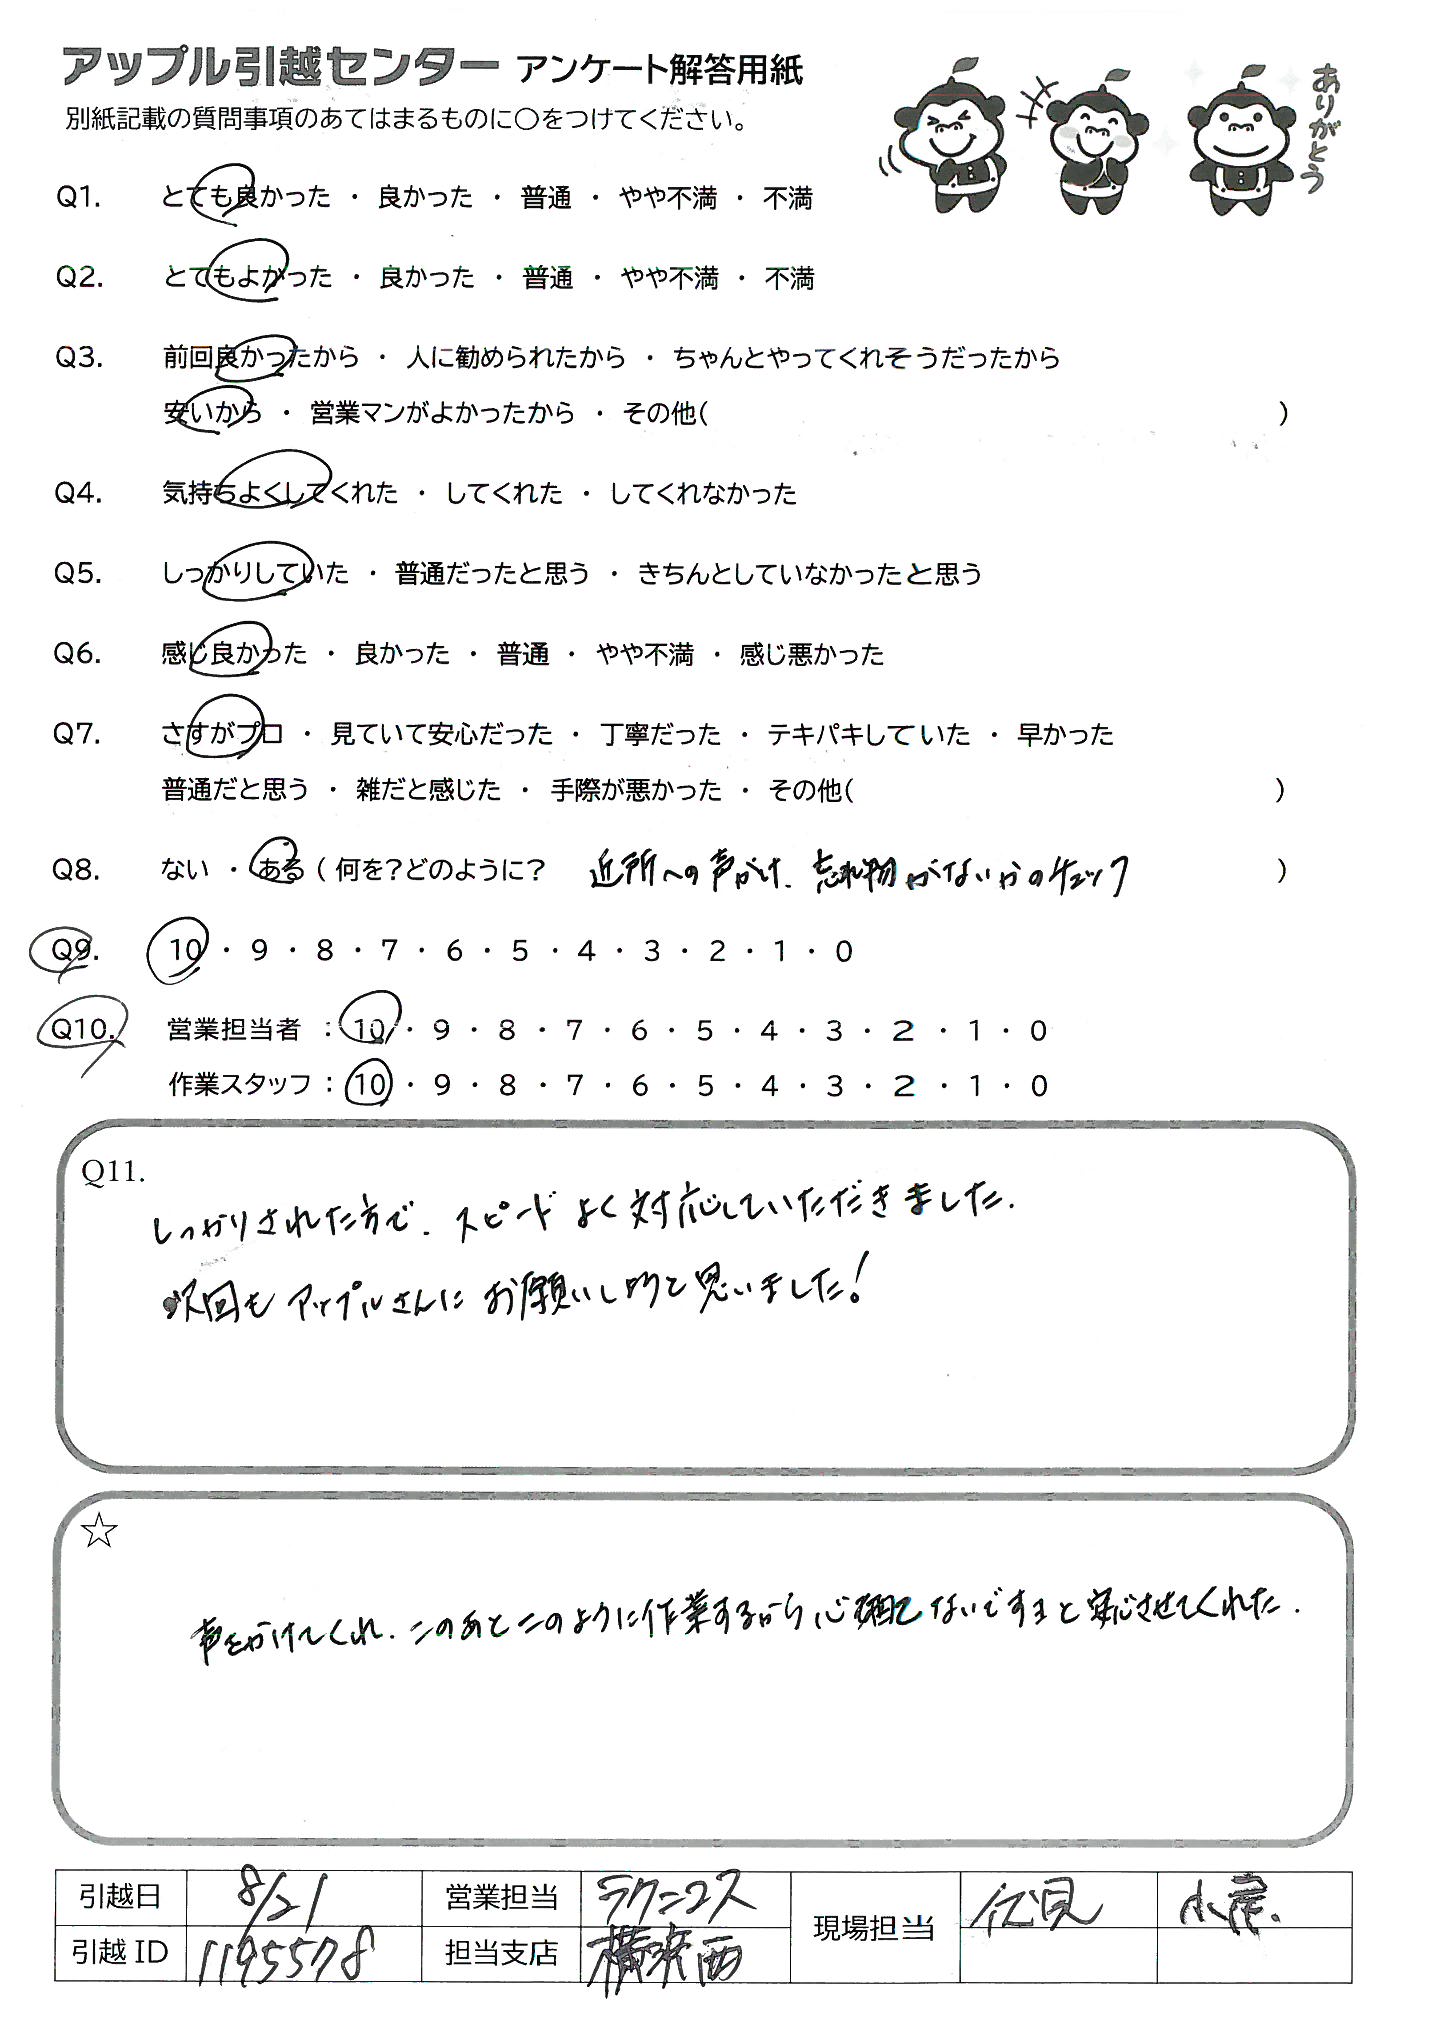 アップル引越センター アンケート解答用紙
別紙記載の質問事項のあてはまるものに○をつけてください。
ありがとう
Q1. とても良かった ・ 良かった ・ 普通 ・ やや不満 ・ 不満
Q2. とてもよかった ・ 良かった ・ 普通 ・ やや不満 ・ 不満
Q3. 前回良かったから ・ 人に勧められたから ・ ちゃんとやってくれそうだったから
安いから ・ 営業マンがよかったから ・ その他( )
Q4. 気持ちよくしてくれた ・ してくれた ・ してくれなかった
Q5. しっかりしていた ・ 普通だったと思う ・ きちんとしていなかったと思う
Q6. 感じ良かった ・ 良かった ・ 普通 ・ やや不満 ・ 感じ悪かった
Q7. さすがプロ ・ 見ていて安心だった ・ 丁寧だった ・ テキパキしていた ・ 早かった
普通だと思う ・ 雑だと感じた ・ 手際が悪かった ・ その他( )
Q8. ない ・ ある ( 何を？どのように？ 近所への声がけ、忘れ物がないかのチェック )
Q9. 10 ・ 9 ・ 8 ・ 7 ・ 6 ・ 5 ・ 4 ・ 3 ・ 2 ・ 1 ・ 0
Q10. 営業担当者 : 10 ・ 9 ・ 8 ・ 7 ・ 6 ・ 5 ・ 4 ・ 3 ・ 2 ・ 1 ・ 0
作業スタッフ : 10 ・ 9 ・ 8 ・ 7 ・ 6 ・ 5 ・ 4 ・ 3 ・ 2 ・ 1 ・ 0
Q11.
しっかりされた方で、スピードよく対応していただきました.
次回もアップルさんにお願いしようと思いました!
☆
声をかけてくれ、このあとこのように作業するから心配ないですよと安心させてくれた.
引越日 8/21 営業担当 現場担当 伏見
引越 ID 1195578 担当支店 横浜西